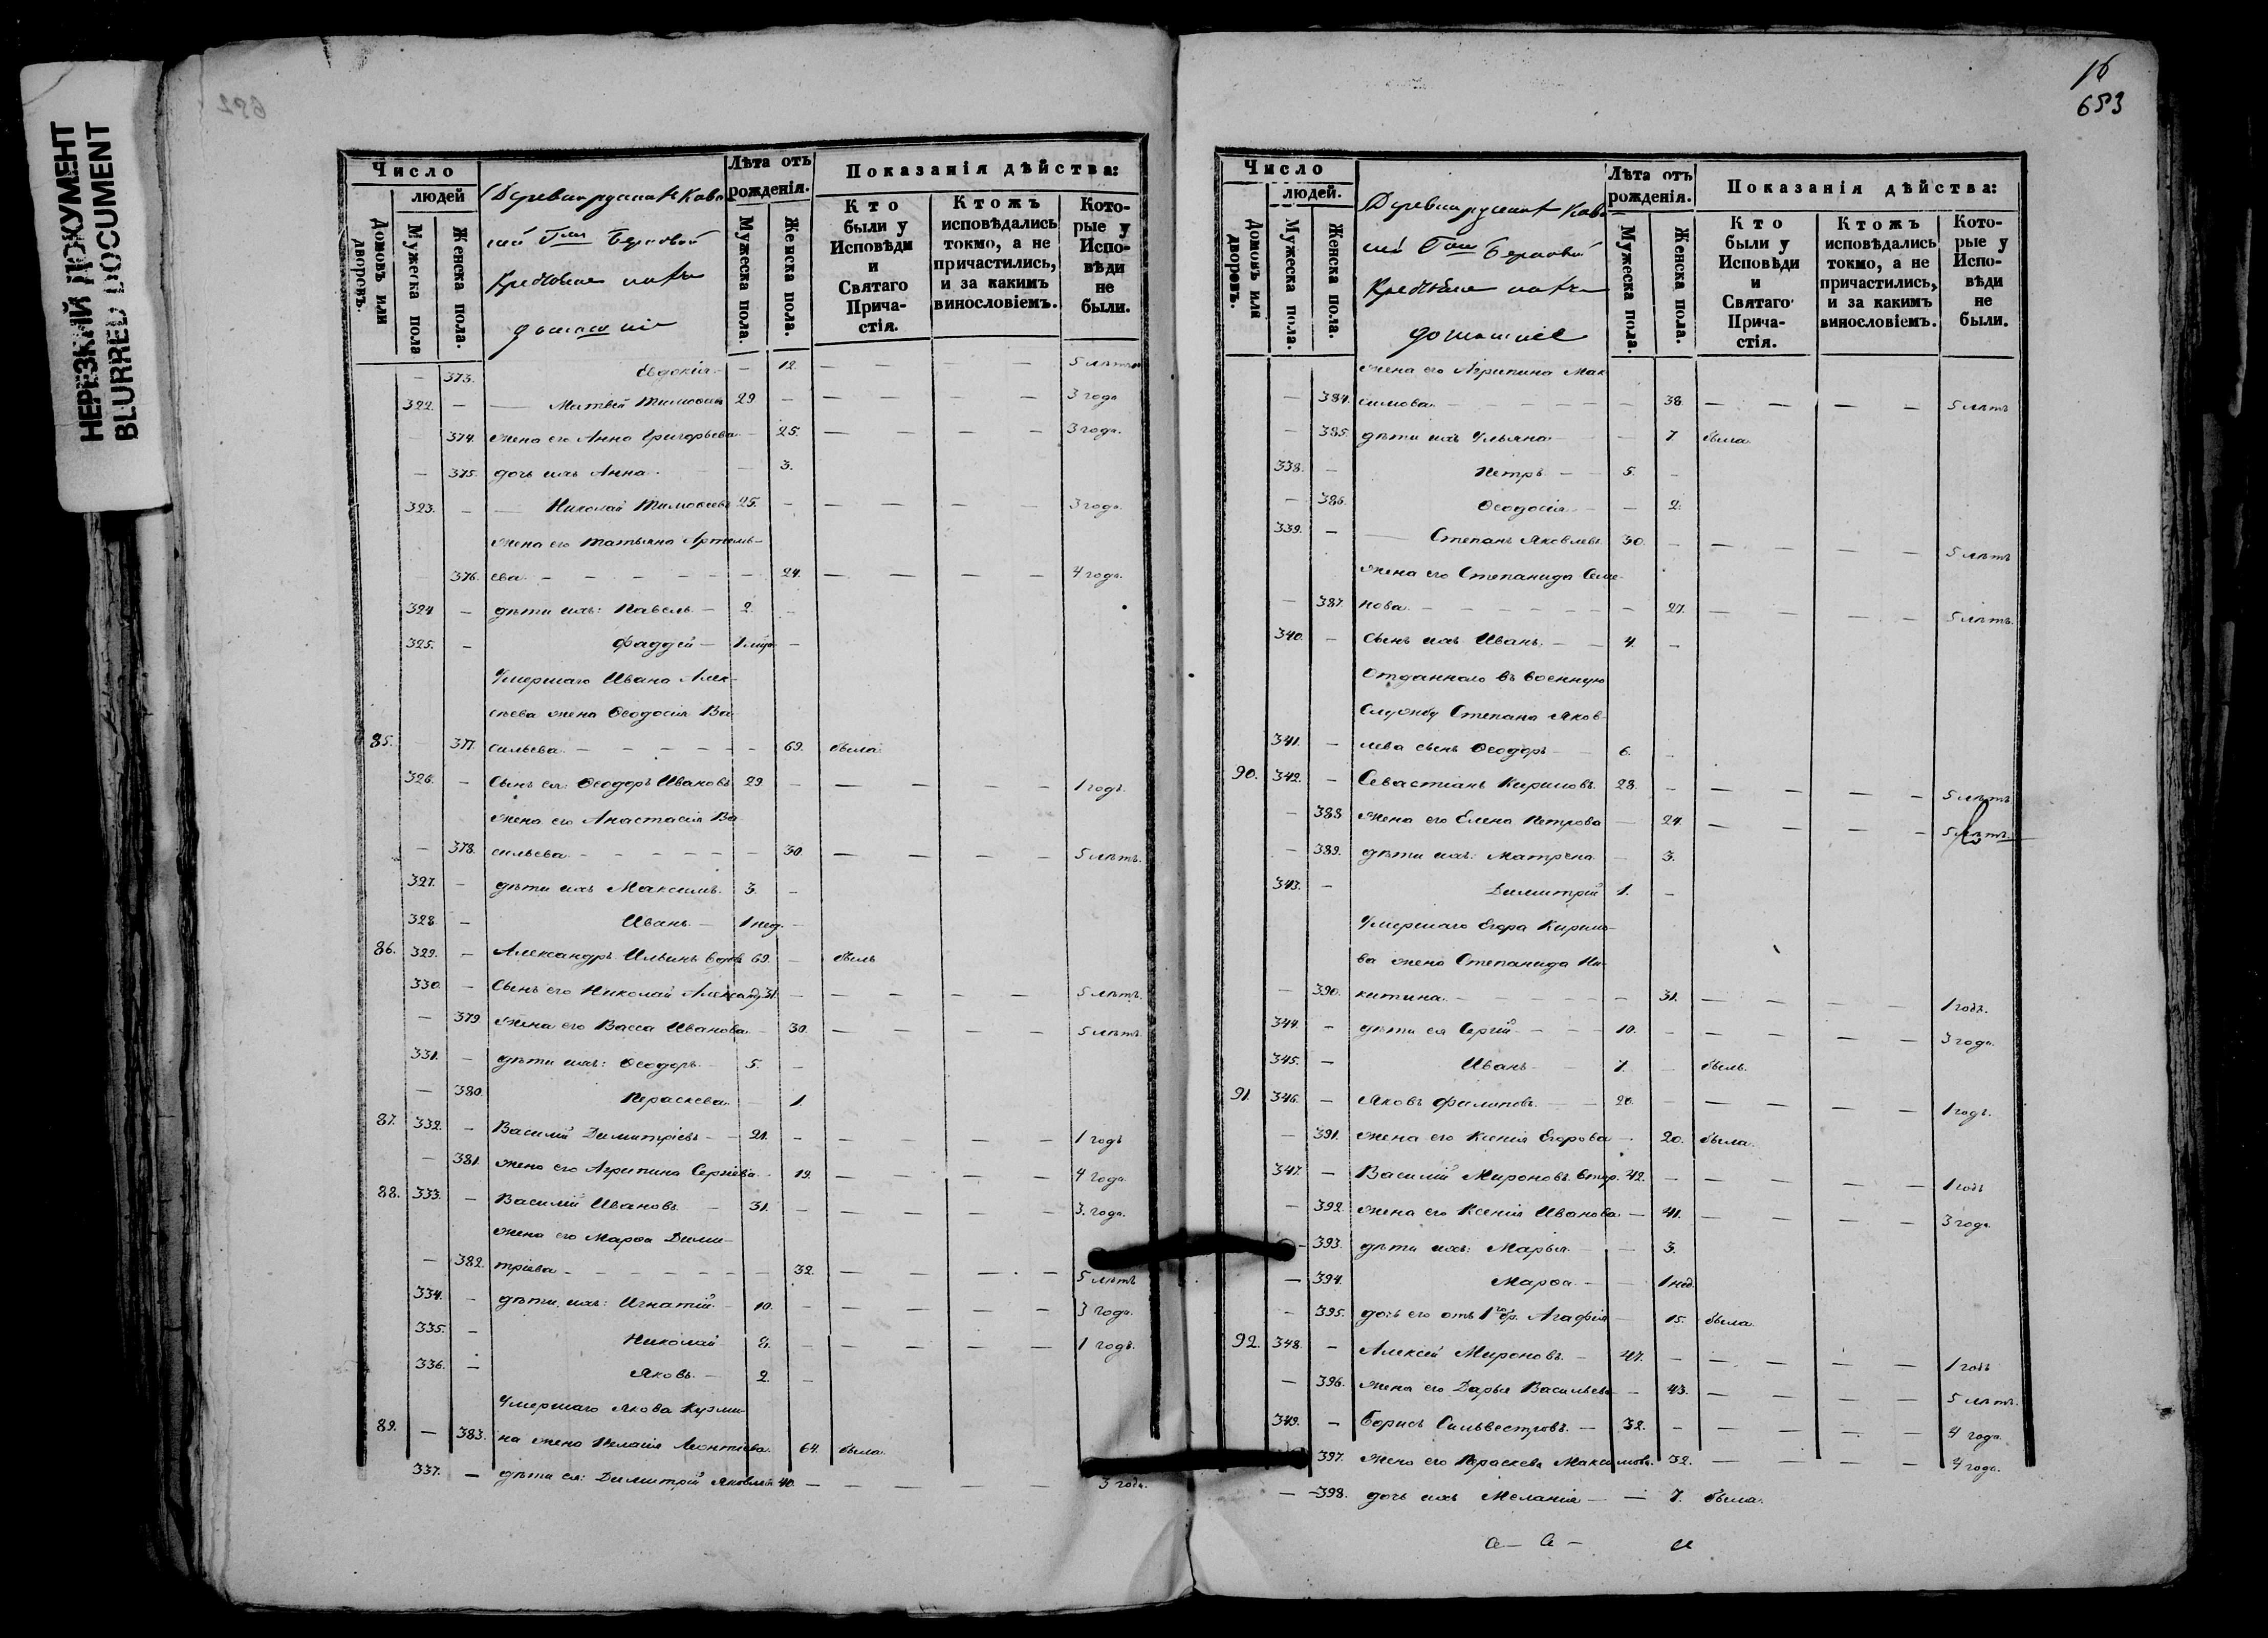 НЕРЕЗКИЙ ДОКУМЕНТ
BLURRED DOCUMENT
682
Число
людей
Домовъ или дворовъ.
Мужеска пола
Женска пола.
Лѣта отъ рожденія.
Мужеска пола.
Женска пола.
Показанія дѣйства:
Кто были у Исповѣди и Святаго Прича-стія.
Ктожъ исповѣдались токмо, а не причастились, и за какимъ винословіемъ.
Кото-рые у Испо-вѣди не были.
— 373. Евдокія — 12. — — — — 5 лѣтъ
322. — Матвей Тимофеевъ 29 — — — — — 3 года
374. жена его Анна Григорьева — 25. — — — — 3 года.
— 375. дочь ихъ Анна — 3.
323. — Николай Тимофеевъ 25. — — — — — 3 года.
жена его Татьяна Артемь-
376. ева — 24. — — — — 4 года.
324 — дѣти ихъ: Павелъ — 2. —
325. — Фаддей —
Умершаго Ивана Алек-
сѣева жена Ѳеодосія Ва-
85. — 377. сильева — 69. была
326. — Сынъ ея: Ѳеодоръ Ивановъ 29 — — — — — 1 годъ.
жена его Анастасія Ва-
— 378. сильева — 30. — — — — 5 лѣтъ.
327. — дѣти ихъ Максимъ 3. —
328. — Иванъ — 1 нед. —
86. 329. — Александръ Ильинъ 69. — былъ
330. — Сынъ его Николай Александ. 31. — — — — — 5 лѣтъ.
— 379 жена его Васса Иванова — 30. — — — — 5 лѣтъ.
331. — дѣти ихъ: Ѳеодоръ 5. —
— 380. Параскева — 1.
87. 332. — Василій Димитріевъ — 21. — — — — — 1 годъ
— 381. жена его Агрипина Сергіева — 19. — — — — 4 года
88. 333. — Василій Ивановъ — 31. — — — — — 3. года.
жена его Марѳа Дими-
— 382. тріева — 32. — — — — 5 лѣтъ
334. — дѣти ихъ: Игнатій — 10. — — — — — 3 года.
335. — Николай 8. — — — — — 1 годъ.
336. — Яковъ — 2. —
Умершаго Якова Кузми-
89. — 383. на жена Пелагія Леонтіева 64. была.
337. — дѣти ея: Димитрій Яковлевъ 40. — — — — — 3 года.
16
653
Число
людей.
Домовъ или дворовъ.
Мужеска пола.
Женска пола.
Лѣта отъ рожденія.
Мужеска пола.
Женска пола.
Показанія дѣйства:
Кто были у Исповѣди и Святаго Прича-стія.
Ктожъ исповѣдались токмо, а не причастились, и за какимъ винословіемъ.
Кото-рые у Испо-вѣди не были.
жена его Агрипина Мак-
— 384. симова — 38. — — — — 5 лѣтъ
— 385. дѣти ихъ Ульяна — 7. была.
338. — Петръ — 5. —
— 386. Ѳеодосія — 2.
339. — Степанъ Яковлевъ 30. — — — — — 5 лѣтъ
жена его Степанида Семе-
— 387. нова. — 27. — — — — 5 лѣтъ.
340. — Сынъ ихъ Иванъ. — 4. —
Отданнаго въ военную
службу Степана Яков-
341. — лева сынъ Ѳеодоръ — 6. —
90. 342. — Севастіанъ Кириловъ. 28. — — — — — 5 лѣтъ
— 388 жена его Елена Петрова — 24. — — — — 5 лѣтъ.
— 389. дѣти ихъ: Матрена — 3.
343. — Димитрій 1. —
Умершаго Егора Кирило-
ва жена Степанида Ни-
— 390. китина. — 31. — — — — 1 годъ.
344. — дѣти ея Сергій — 10. — — — — — 3 года.
345. — Иванъ — 1. — былъ.
91. 346. — Яковъ Филиповъ. — 20. — — — — — 1 годъ.
— 391. жена его Ксенія Егорова — 20. была.
347. — Василій Мироновъ 42. — — — — — 1 годъ
— 392. жена его Ксенія Иванова — 41. — — — — 3 года
— 393. дѣти ихъ: Марья — 3.
— 394. Марѳа — 1 нед.
— 395. дочь его отъ 1го бр. Агафія — 15. была.
92. 348. — Алексей Мироновъ. — 47. — — — — — 1 годъ
— 396. жена его Дарья Васильева — 43. — — — — 5 лѣтъ.
349. — Борисъ Сильвестровъ. — 32. — — — — — 4 года
397. жена его Параскева Максимова. 32. — — — — 4 года.
— 398. дочь ихъ Меланія — 7. была.